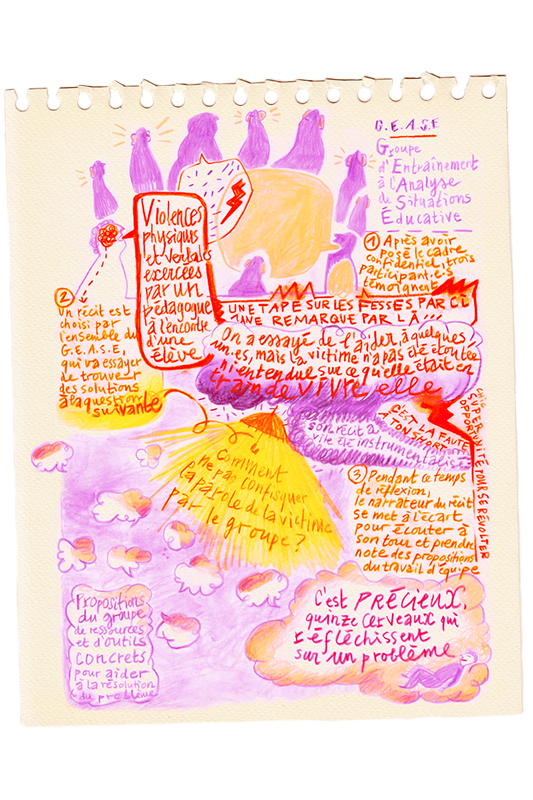 G.E.A.S.E
Groupe
d'Entraînement
à l'Analyse
de Situations
Éducative
1 Après avoir
posé le cadre
confidentiel, trois
participant.e.s
témoignent
Violences
physiques
et verbales
exercées
par un
pédagogue
à l'encontre
d'une
élève
UNE TAPE SUR LES FESSES PAR CI
UNE REMARQUE PAR LÀ...
2
Un récit est
choisi par
l'ensemble du
G.E.A.S.E,
qui va essayer
de trouver
des solutions
à la question
suivante
On a essayé de l'aider, à quelques
un.es, mais la victime n'a pas été écoutée
ni entendue sur ce qu'elle était en
train de vivre, elle
son récit a
vite été instrumentalisé
C'EST LA FAUTE
À TON SHORT
OPPORTUNITÉ POUR SE RÉVOLTER
Comment
ne pas confisquer
la parole de la victime
par le groupe ?
3 Pendant ce temps
de réflexion,
le narrateur du récit
se met à l'écart
pour écouter à
son tour et prendre
note des propositions
du travail d'équipe
Propositions
du groupe
de ressources
et d'outils
concrets
pour aider
à la résolution
du problème
C'est PRÉCIEUX,
quinze cerveaux qui
réfléchissent
sur un problème